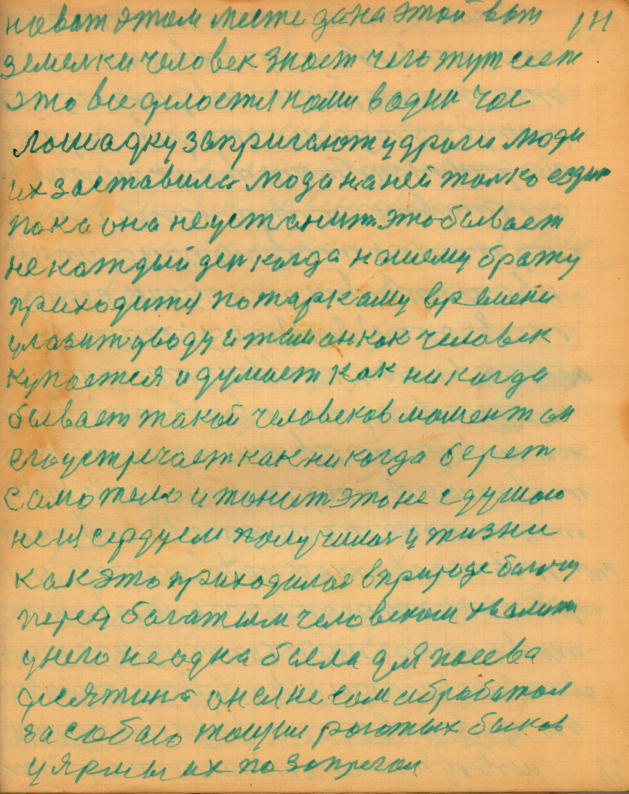 новот этом месте дана этой вот 141
земелки человек знает чего тут сеет
это все делается нами водин час
лошадку запригают у дроги люди
их заставила мода на ней толко ездит
пока она неустанит. это бывает
не каждый ден когда нашему брату
приходитя по жаркаму времени
улазит уводу и там он как человек
купается и думает как никогда
бывает такой человеков момент он
его устречает как никогда берет
само тело и тонит это не сдушою
не и сердцем получилас у жизни
как это приходилос в природе
перед багатым человеком хвалит
у него не одна была для посева
десятина он ея не сам обработал
за собою рогатых быков
у ярмы их позапрегал